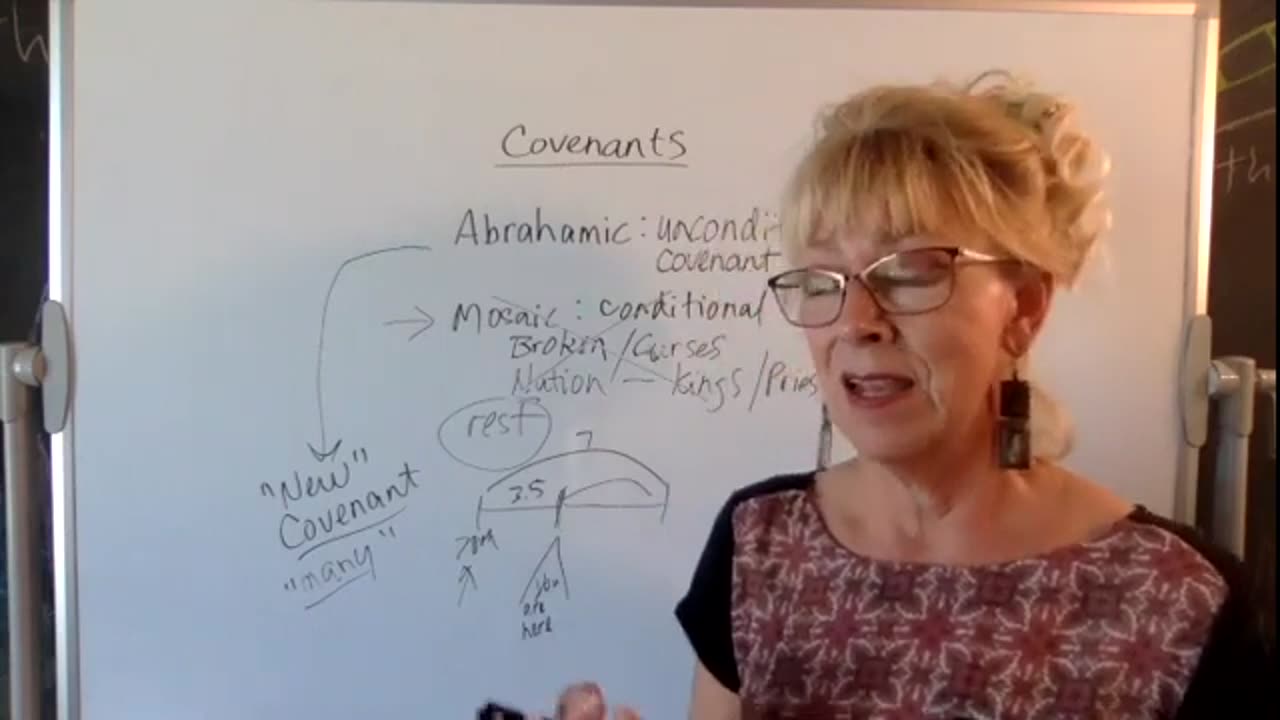 Covenants
Abrahamic: uncondit
Covenant
Mosaic: conditional
Broken/Curses
Nation — Kings/Pries
rest
7
3.5
"New"
Covenant
"many"
you
are
here
th